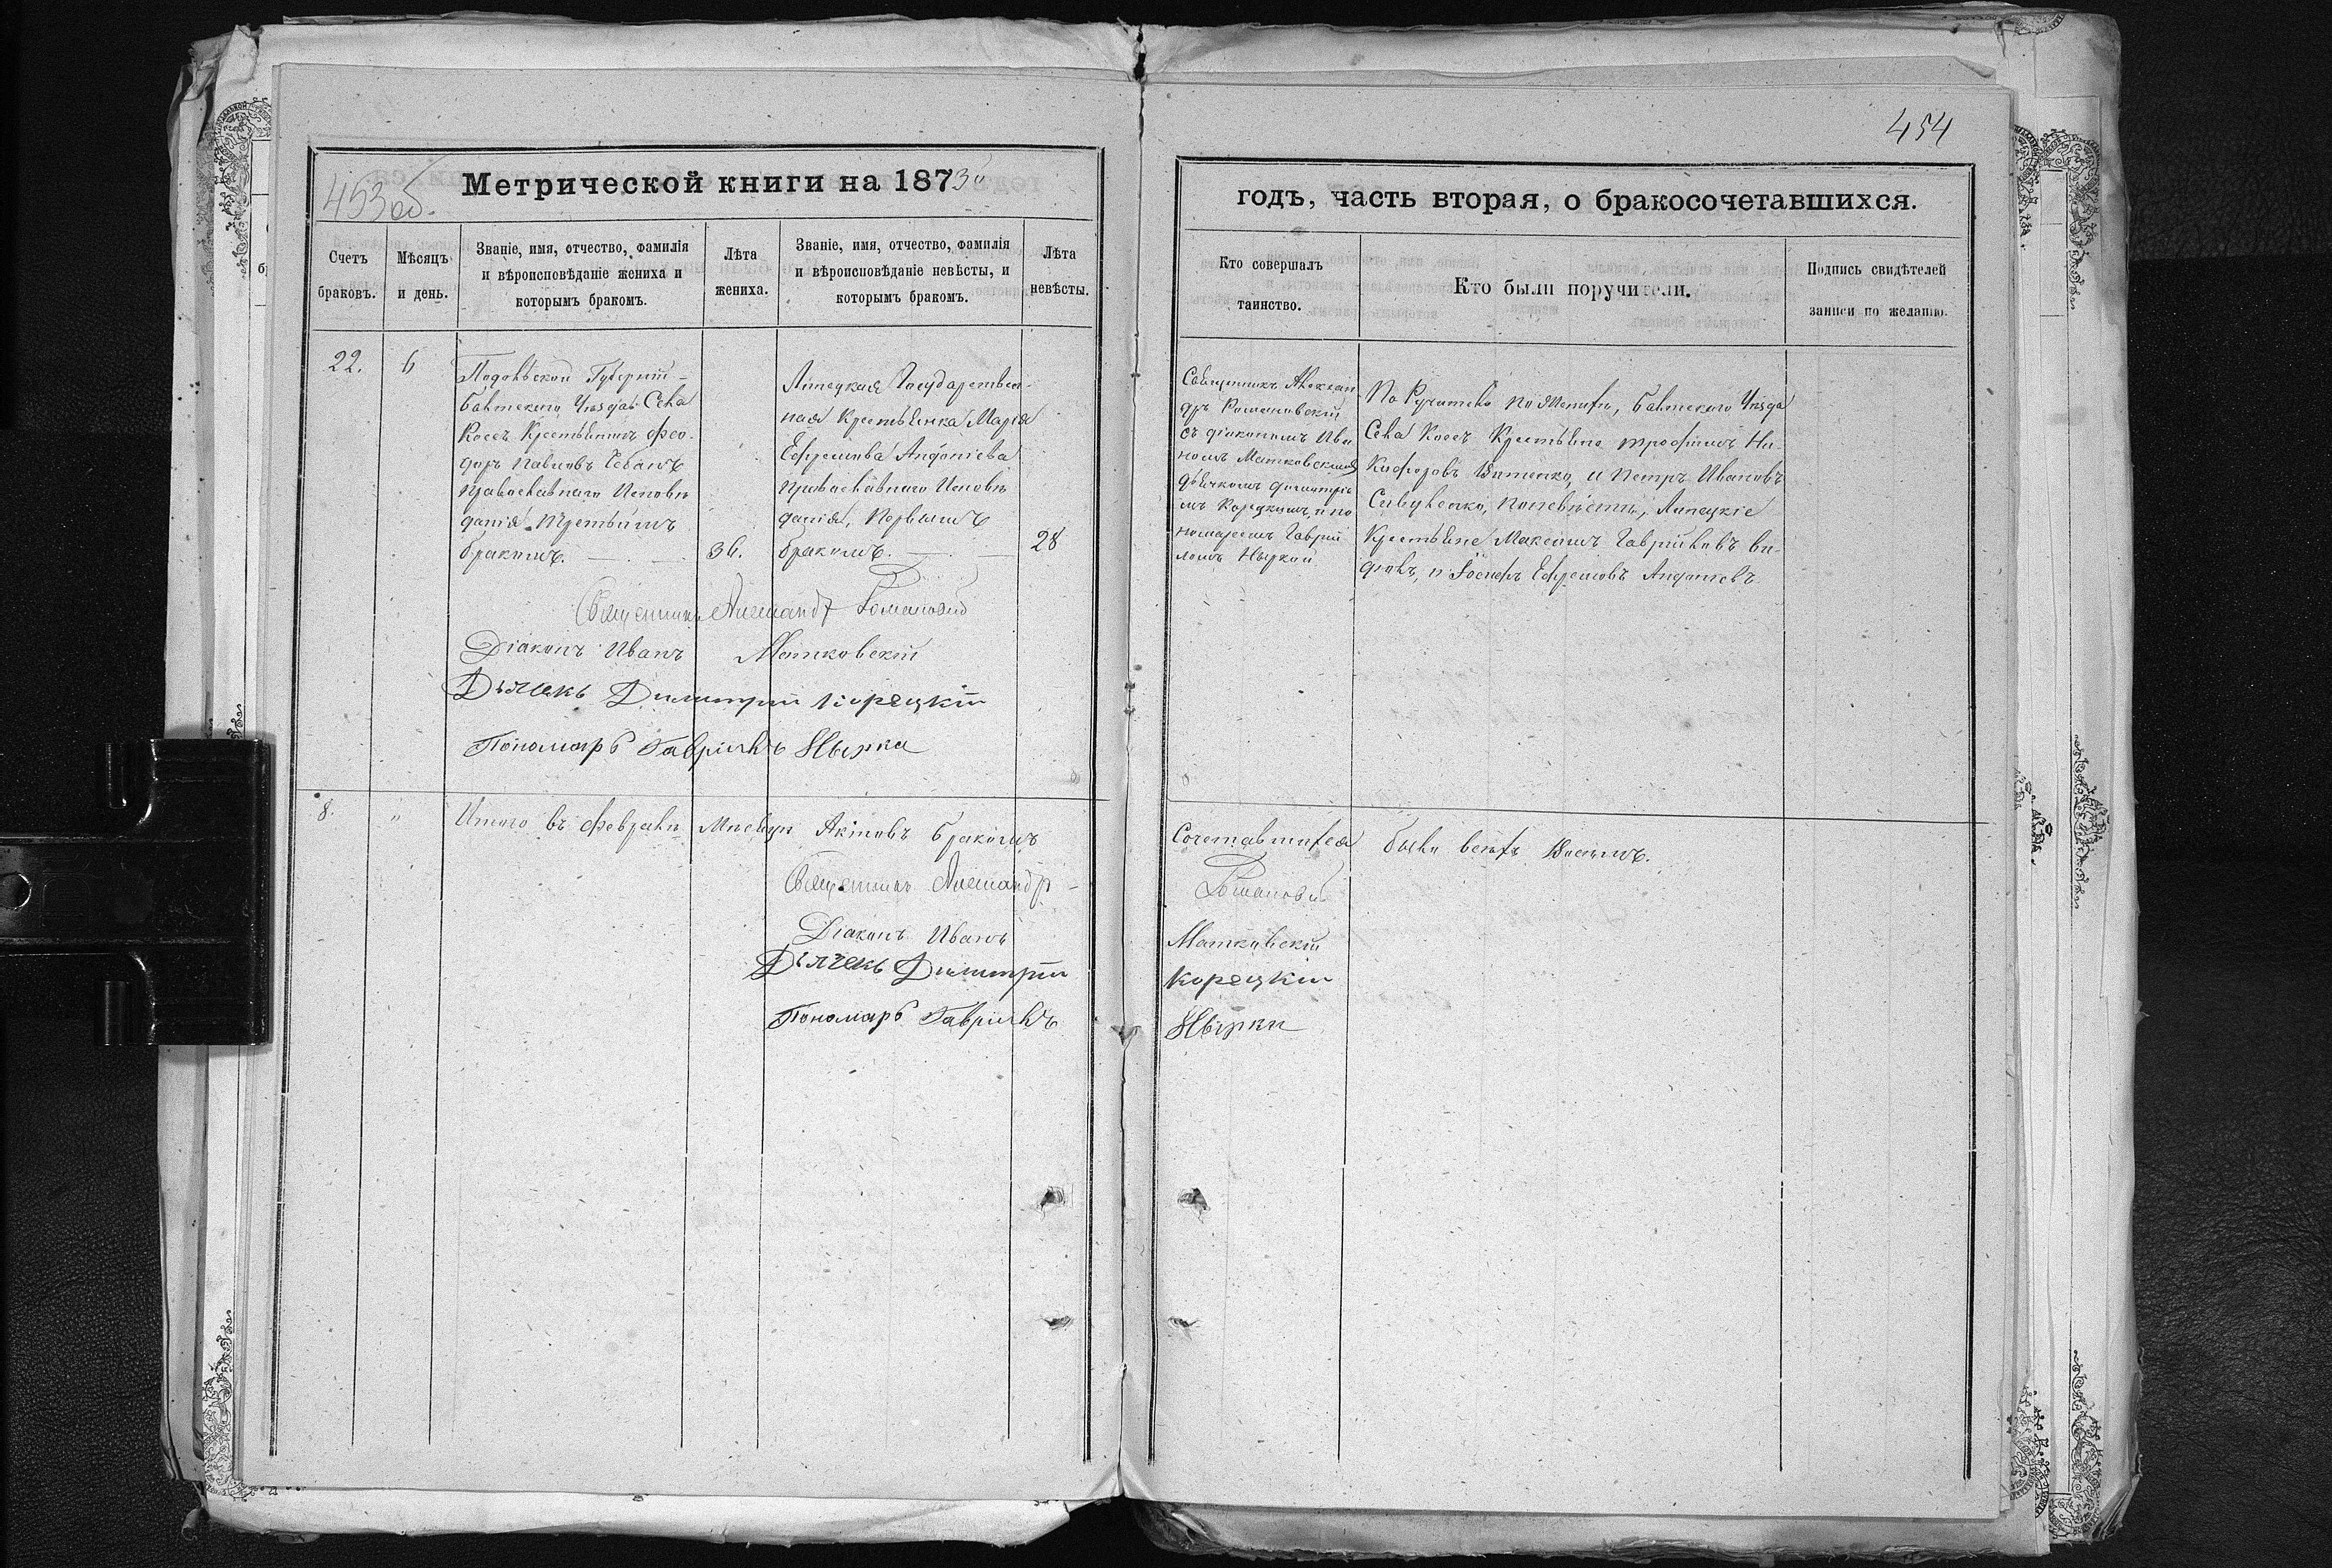 453 об.
Метрической книги на 1873й
Счетъ браковъ.
Мѣсяцъ и день.
Званіе, имя, отчество, фамилія
и вѣроисповѣданіе жениха и
которымъ бракомъ.
Лѣта жениха.
Званіе, имя, отчество, фамилія
и вѣроисповѣданіе невѣсты, и
которымъ бракомъ.
Лѣта невѣсты.
22.
6
Подольской Губерніи
Балтскаго Уѣзда Села
Косъ Крестьянинъ Фео-
доръ Павловъ Чебанъ
православнаго Исповѣ
данія третьимъ
бракомъ.
36.
Липецкая Государствен-
ная Крестьянка Марія
Ефремова Андоніева
православнаго Исповѣ
данія, первымъ
бракомъ.
28
Священникъ Александръ Романовскій
Діаконъ Иванъ Матковскій
Дьячекъ Димитрій Корецкій
Пономарь Гавріилъ Нырка
8.
"
Итого въ Февралѣ Мѣсяцѣ Актовъ бракомъ
Священникъ Александръ
Діаконъ Иванъ
Дьячекъ Димитрій
Пономарь Гавріилъ
454
годъ, часть вторая, о бракосочетавшихся.
Кто совершалъ
таинство.
Кто были поручители.
Подпись свидѣтелей
записи по желанію.
Священникъ Алексан
дръ Романовскій
съ діакономъ Ива
номъ Матковскимъ
дьячкомъ Димитріе
мъ Корецкимъ, и по
номаремъ Гаврій
ломъ Ныркой
По Ручители по Женихѣ, Балтскаго Уѣзда
Села Косъ Крестьяне Трофимъ Ни-
кифоровъ и Петръ Ивановъ
Савуленко, по невѣстѣ, Липецкіе
Крестьяне Максимъ Гавриловъ
и Іосифъ Ефремовъ Андоніевъ
Сочетавшихся было всѣхъ Восемь.
Романовскій
Матковскій
Корецкій
Нырка